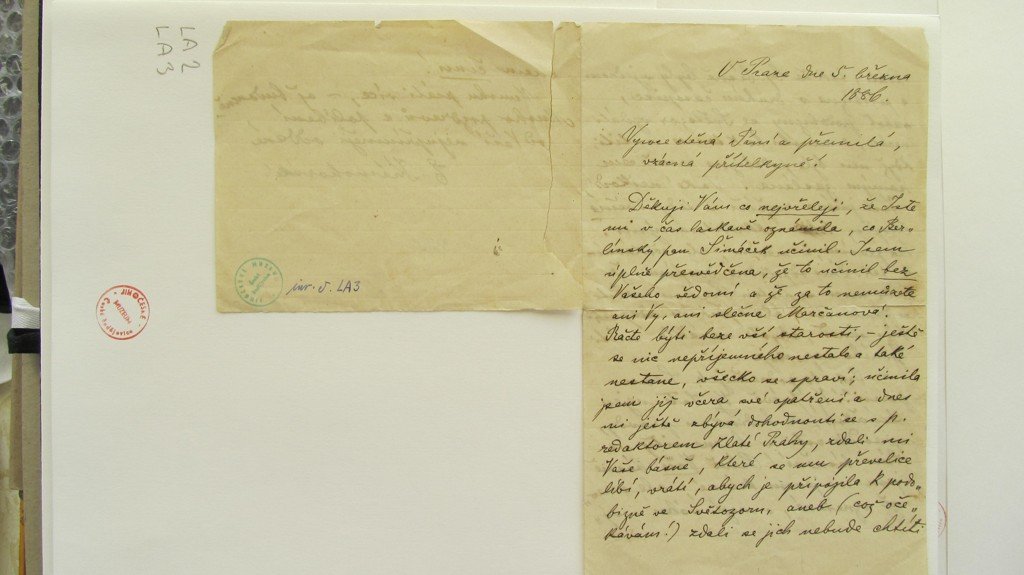 LA2
LA3
inv. č. LA3
JIHOČESKÉ
MUZEUM
V Praze dne 5. března
1886.
Vysoce ctěná Paní a přemilá,
vzácná přítelkyně!
Děkuji Vám co nejvřeleji, že Jste
mi v čas laskavě oznámila, co Ber-
línský pan Šimáček učinil. Jsem
úplně přesvěčena, že to učinil bez
Vašeho vědomí a že za to nemůžete
ani Vy, ani slečna Marčanová.
Račte býti beze vší starosti, – ještě
se nic nepříjemného nestalo a také
nestane, všecko se spraví; učinila
jsem již včera své opatření a dnes
mi ještě zbývá dohodnouti se s p.
redaktorem Zlaté Prahy, zdali mi
Vaše básně, které se mu převelice
líbí, vrátí, abych je připojila k podo-
bizně ve Světozoru, aneb (což oče-
kávám!) zdali se jich nebude chtíti